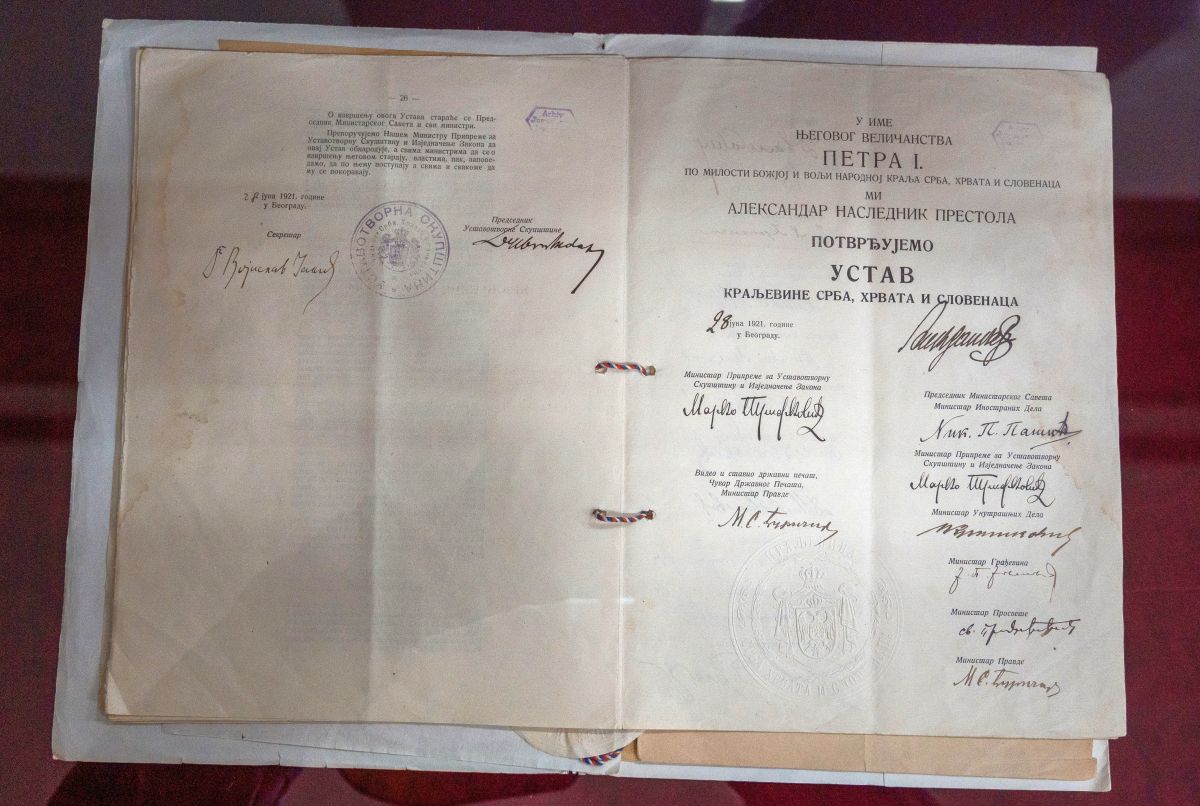 — 26 —
О извршењу овога Устава стараће се Пред-
седник Министарског Савета и сви министри.
Препоручујемо Нашем Министру Припреме за
Уставотворну Скупштину и Изједначење Закона да
овај Устав обнародује, а свима министрима да се о
извршењу његовом старају, властима, пак, запове-
дамо, да по њему поступају а свима и свакоме да
му се покоравају.
28 јуна 1921. године
у Београду.
Секретар
Председник
Уставотворне Скупштине
УСТАВОТВОРНА СКУПШТИНА
Arhiv
У ИМЕ
ЊЕГОВОГ ВЕЛИЧАНСТВА
ПЕТРА I.
ПО МИЛОСТИ БОЖЈОЈ И ВОЉИ НАРОДНОЈ КРАЉА СРБА, ХРВАТА И СЛОВЕНАЦА
МИ
АЛЕКСАНДАР НАСЛЕДНИК ПРЕСТОЛА
ПОТВРЂУЈЕМО
УСТАВ
КРАЉЕВИНЕ СРБА, ХРВАТА И СЛОВЕНАЦА
28 јуна 1921. године
у Београду.
Александар
Министар Припреме за Уставотворну
Скупштину и Изједначење Закона
Марко Трифковић
Видео и ставио државни печат,
Чувар Државног Печата,
Министар Правде
М. С. Ђуричић
Председник Министарског Савета
Министар Иностраних Дела
Ник. П. Пашић
Министар Припреме за Уставотворну
Скупштину и Изједначење Закона
Марко Трифковић
Министар Унутрашњих Дела
Министар Грађевина
Министар Просвете
Министар Правде
М. С. Ђуричић